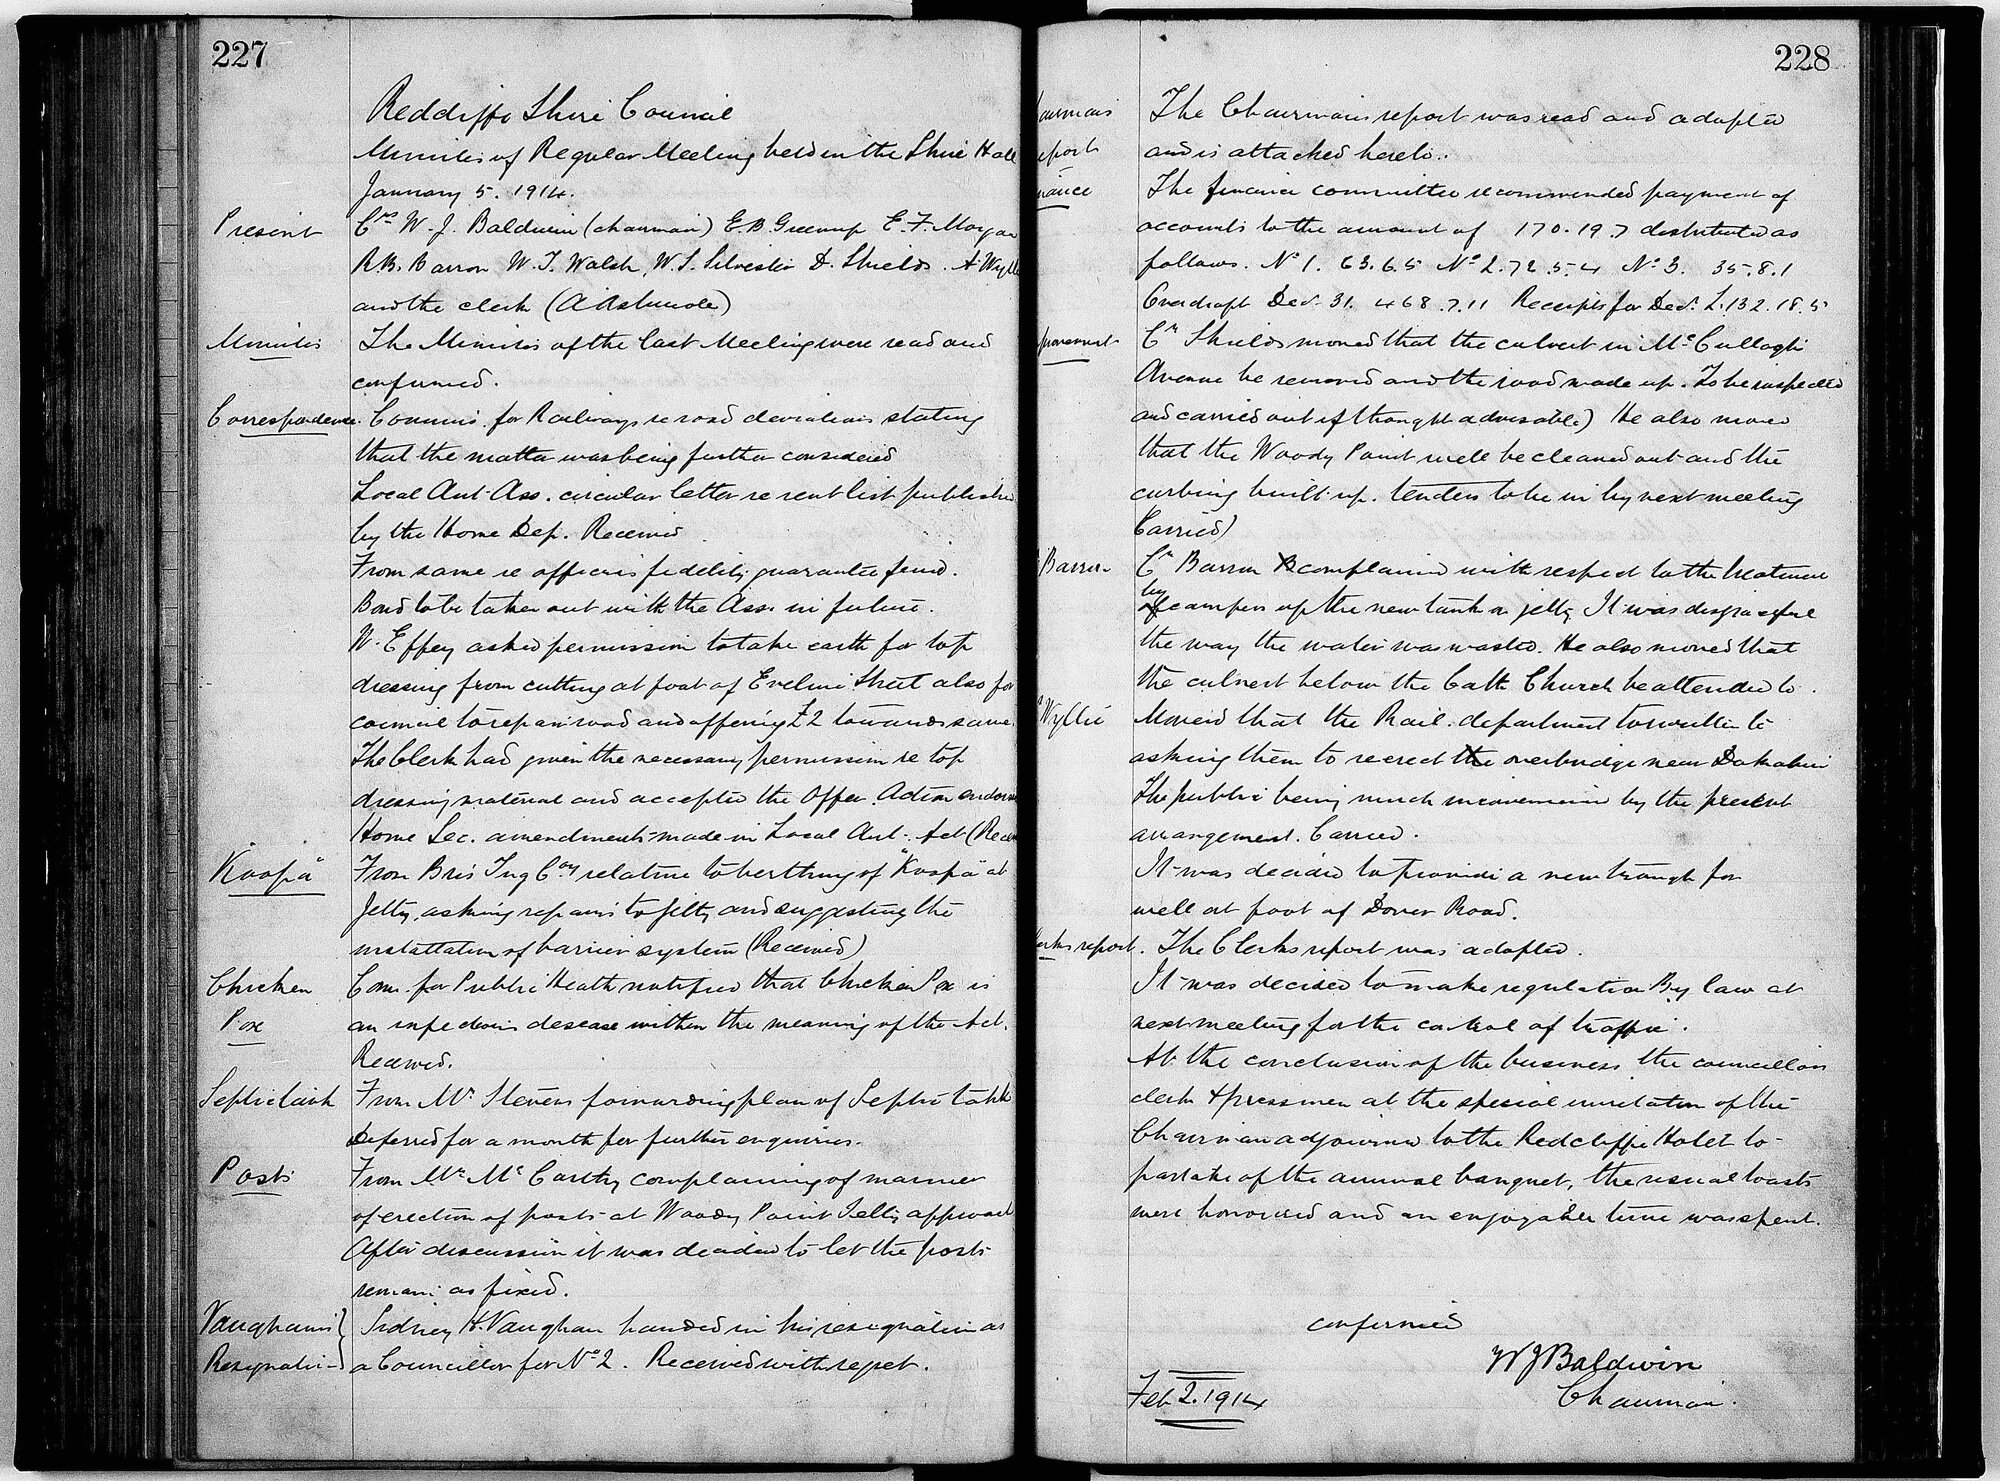 227
Redcliffe Shire Council
Minutes of Regular Meeting held in the Shire Hall
January 5. 1914.
Present
Crs W. J. Baldwin (chairman) E. B. Greenup E. F. Morgan
R. B. Barron W. T. Walsh, W. S. Silvester D. Shields. A Wyllie
and the clerk (A Ashmole)
Minutes
The Minutes of the last Meeting were read and
confirmed.
Correspondence.
Commis. for Railways re road deviation stating
that the matter was being further considered
Local Aut. Ass. circular letter re rent list published
by the Home Dep. Received
From same re officers fidelity guarantee fund.
Bond to be taken out with the Ass. in future.
W. Effey asked permission to take earth for top
dressing from cutting at foot of Eveline Street also for
council to repair road and offering £2 towards same.
The Clerk had given the necessary permission re top
dressing material and accepted the offer. Action endorsed
Home Sec. amendments made in Local Aut. Act (Rece
Koopa
From Bris Tug Coy relative to berthing of "Koopa" at
Jetty, asking repairs to jetty and suggesting the
installation of barrier system (Received)
Chicken
Pox
Com. for Public Health notified that Chicken Pox is
an infectious desease within the meaning of the Act.
Received.
Septic tank
From Mr Stevens forwarding plan of Septic tank
Deferred for a month for further enquiries.
Posts
From Mr McCarthy complaining of manner
of erection of posts at Woody Point Jetty approach
After discussion it was decided to let the posts
remain as fixed.
Vaughan's
Resignation
Sidney H. Vaughan handed in his resignation as
a Councillor for No 2. Received with regret.
228
airmans
eport
The Chairmans report was read and adopted
and is attached hereto.
nance
The finance committee recommended payment of
accounts to the amount of 170.19.7 distributed as
follows. No 1. 63.6.5 No 2. 72.5.4 No 3. 35.8.1
Overdraft Dec. 31. 468.7.11 Receipts for Dec. £132.18.5
provement
Cr Shields moved that the culvert in McCullagh
Avenue be removed and the road made up. To be inspected
and carried out if thought advisable) He also moved
that the Woody Point well be cleaned out and the
curbing built up. tenders to be in by next meeting
Carried)
Barron
Cr Barron complained with respect to the treatment
by
of campers up the new tank on jetty. It was disgraceful
the way the water was wasted. He also moved that
the culvert below the Cath Church be attended to.
Wyllie
Moved that the Rail. department be written to
asking them to re erect the overbridge near Dakabin
The public being much inconvenienced by the present
arrangement. Carried.
It was decided to provide a new trough for
well at foot of Dover Road.
lerks report.
The Clerks report was adopted.
It was decided to make regulation By law at
next meeting for the control of traffic.
At the conclusion of the business the councillors
clerk & pressmen at the special invitation of the
Chairman adjourned to the Redcliffe Hotel to
partake of the annual banquet, the usual toasts
were honoured and an enjoyable time was spent.
confirmed
W J Baldwin
Chairman.
Feb 2. 1914